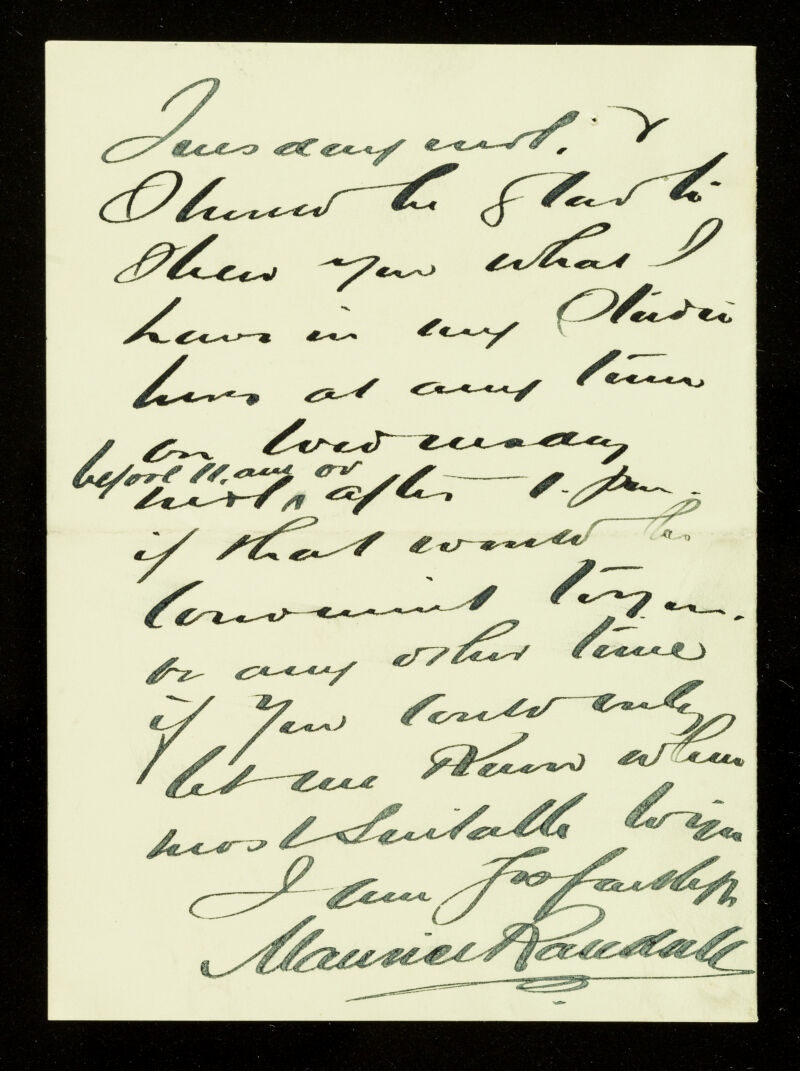 Tuesday next. &
Should be glad to
Shew you what I
have in my Studio
here at any time
on Wednesday
before 11. am or
next ^ after 1. pm.
if that would be
convenient to you.
or any other time
if you could only
let me Know when
most Suitable to you
I am Yrs faithfully
Maurice Randall